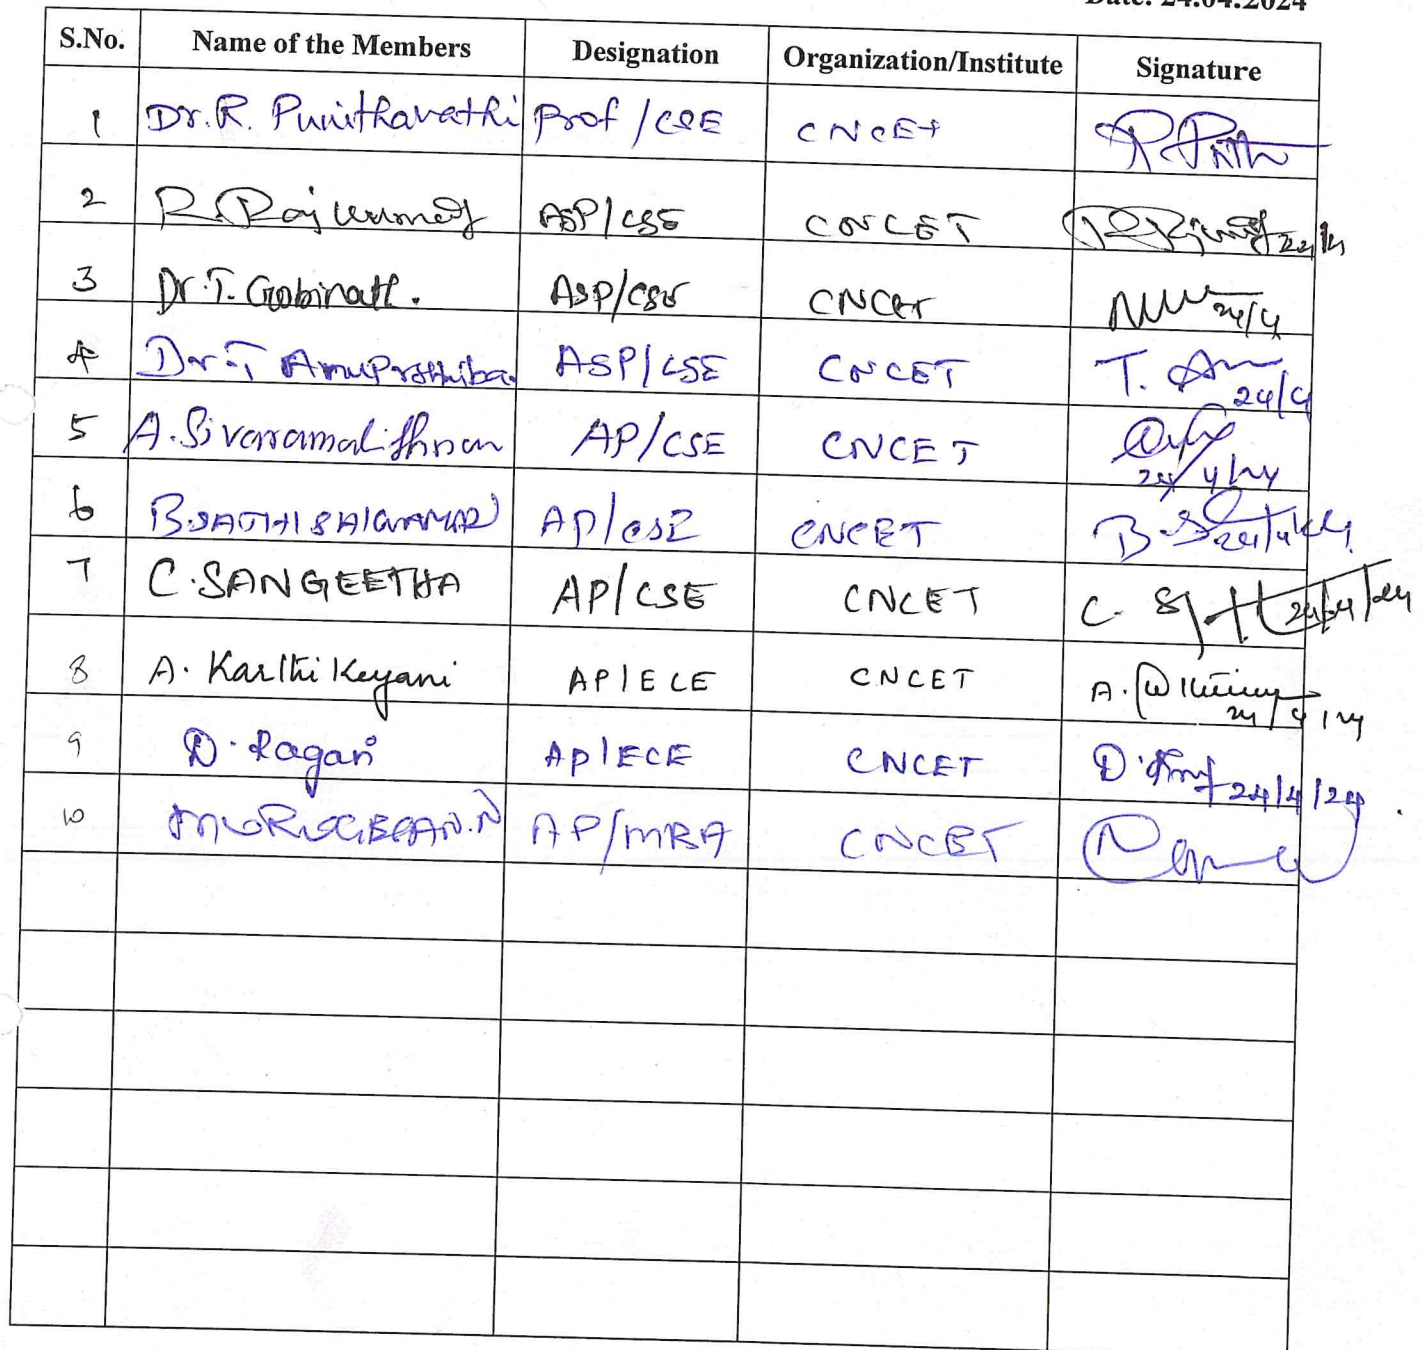 Date: 24.04.2024
S.No. Name of the Members Designation Organization/Institute Signature
1 Dr. R. Punithavathi Prof /CSE CNCET
2 R. Rajkumar ASP/CSE CNCET
3 Dr. T. Gobinath. ASP/CSE CNCET 24/4
4 Dr. T AnuPrathiba. ASP/CSE CNCET T. 24/4
5 A. Sivaramakrishnan AP/CSE CNCET 24/4/24
6 B. SATHISHKUMAR AP/CSE CNCET B.
7 C. SANGEETHA AP/CSE CNCET C. 24/04/24
8 A. Karthikeyani AP/ECE CNCET A. 24/4/24
9 D. Ragan AP/ECE CNCET D. 24/4/24.
10 MURUGESAN.N AP/MBA CNCET